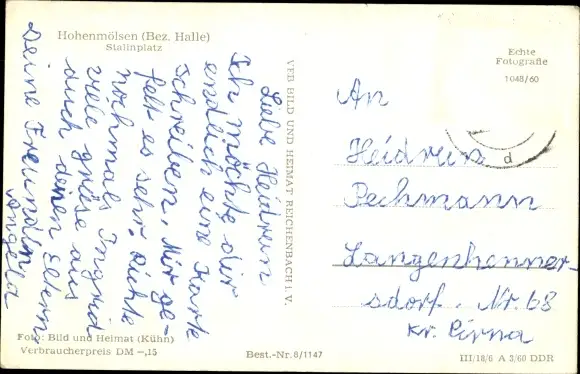 Hohenmölsen (Bez. Halle)
Stalinplatz
Liebe Heidrun
Ich möchte dir
endlich eine Karte
schreiben. Mir ge-
felt es sehr.
nochmals Ingrid
viele grüse aus
auch deinen Eltern.
Deine Freundin
Angela
Foto: Bild und Heimat (Kühn)
Verbraucherpreis DM –,15
VEB BILD UND HEIMAT REICHENBACH i. V.
Best.-Nr. 8/1147
Echte
Fotografie
1048/60
d
An
Heidrun
Pechmann
Langenhenner-
sdorf. Nr. 68
Kr. Pirna
III/18/6 A 3/60 DDR